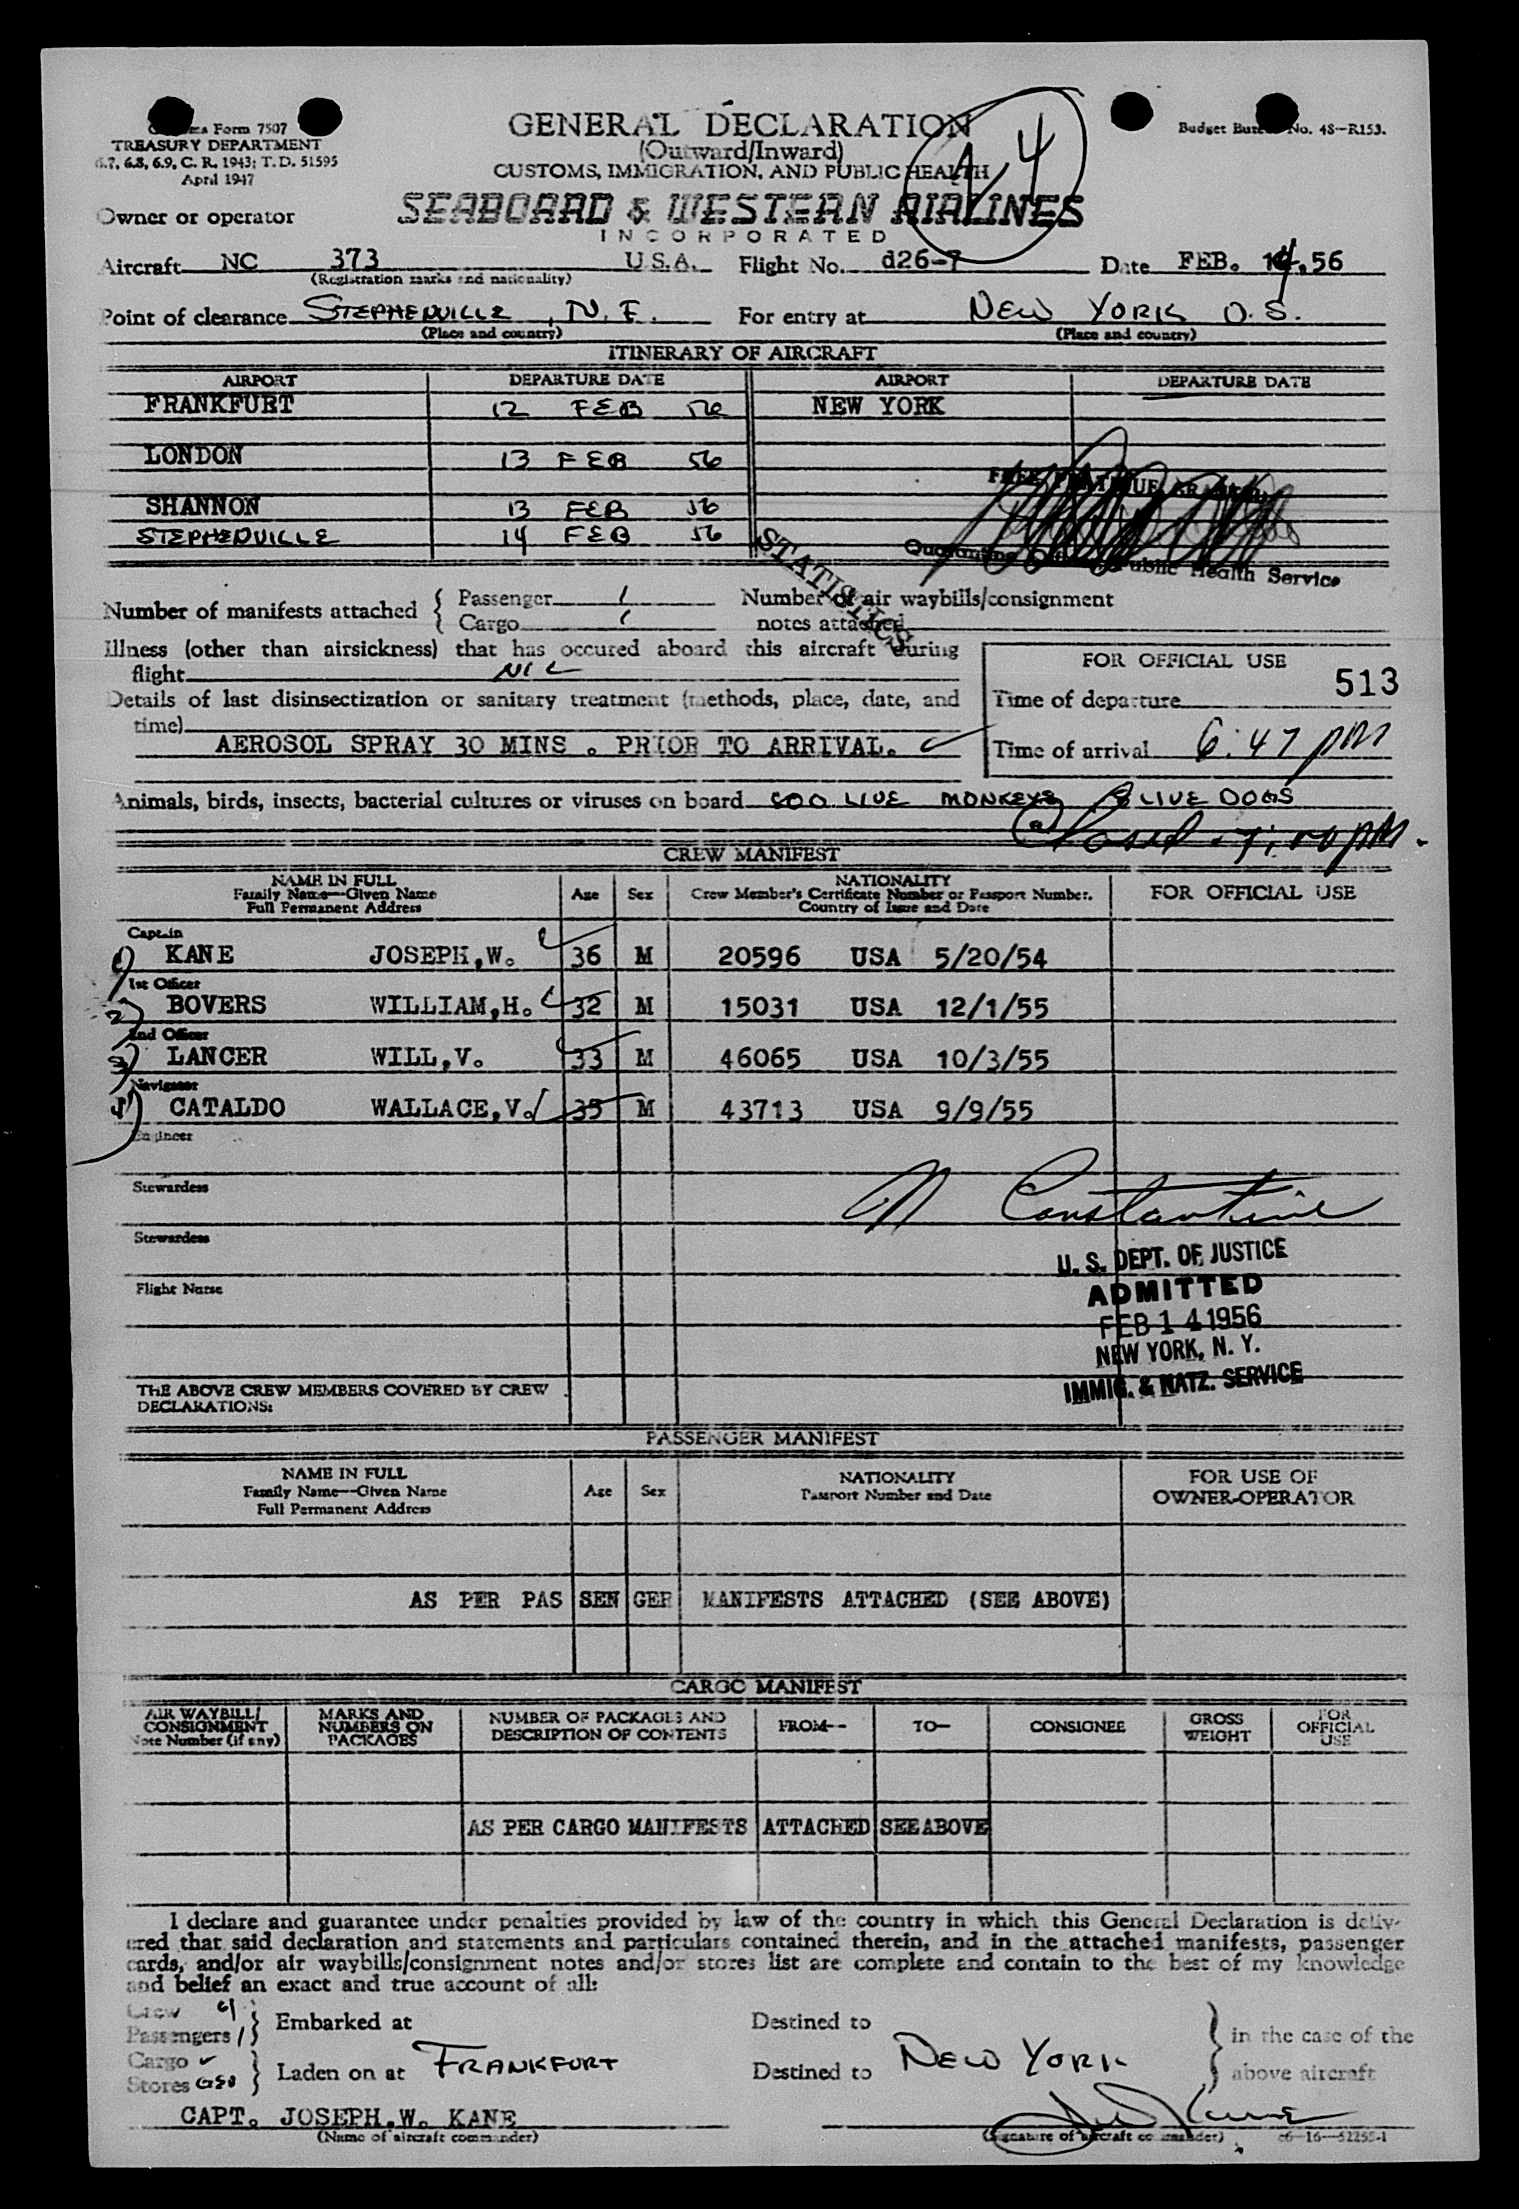 Form 7507
TREASURY DEPARTMENT
6.7, 6.8, 6.9, C. R. 1943; T. D. 51595
April 1947
GENERAL DECLARATION
(Outward/Inward)
CUSTOMS, IMMIGRATION, AND PUBLIC HEALTH
4
Budget Bureau No. 48—R153.
Owner or operator SEABOARD & WESTERN AIRLINES
INCORPORATED
Aircraft NC 373 U.S.A. Flight No. d26-7 Date FEB. 14, 56
(Registration marks and nationality)
Point of clearance STEPHENVILLE, N.F. For entry at NEW YORK U.S.
(Place and country) (Place and country)
ITINERARY OF AIRCRAFT
AIRPORT DEPARTURE DATE AIRPORT DEPARTURE DATE
FRANKFURT 12 FEB 56 NEW YORK
LONDON 13 FEB 56
SHANNON 13 FEB 56
STEPHENVILLE 14 FEB 56
Public Health Service
STATISTICS
Number of manifests attached { Passenger 1 Number of air waybills/consignment
Cargo 1 notes attached
Illness (other than airsickness) that has occured aboard this aircraft during
flight NIL
FOR OFFICIAL USE
513
Details of last disinsectization or sanitary treatment (methods, place, date, and
time)
AEROSOL SPRAY 30 MINS . PRIOR TO ARRIVAL.
Time of departure
Time of arrival 6:47 PM
Animals, birds, insects, bacterial cultures or viruses on board 500 LIVE MONKEYS 8 LIVE DOGS
CREW MANIFEST
NAME IN FULL
Family Name—Given Name
Full Permanent Address
Age Sex
NATIONALITY
Crew Member's Certificate Number or Passport Number.
Country of Issue and Date
FOR OFFICIAL USE
Captain
1) KANE JOSEPH,W. 36 M 20596 USA 5/20/54
1st Officer
2) BOVERS WILLIAM,H. 32 M 15031 USA 12/1/55
2nd Officer
3) LANCER WILL,V. 33 M 46065 USA 10/3/55
Navigator
CATALDO WALLACE,V. 35 M 43713 USA 9/9/55
Engineer
Stewardess
N Constantine
Stewardess
U. S. DEPT. OF JUSTICE
ADMITTED
FEB 14 1956
NEW YORK, N. Y.
IMMIG. & NATZ. SERVICE
Flight Nurse
THE ABOVE CREW MEMBERS COVERED BY CREW
DECLARATIONS:
PASSENGER MANIFEST
NAME IN FULL
Family Name—Given Name
Full Permanent Address
Age Sex
NATIONALITY
Passport Number and Date
FOR USE OF
OWNER-OPERATOR
AS PER PAS SEN GER MANIFESTS ATTACHED (SEE ABOVE)
CARGO MANIFEST
AIR WAYBILL/
CONSIGNMENT
Note Number (if any)
MARKS AND
NUMBERS ON
PACKAGES
NUMBER OF PACKAGES AND
DESCRIPTION OF CONTENTS
FROM—
TO—
CONSIGNEE
GROSS
WEIGHT
FOR
OFFICIAL
USE
AS PER CARGO MANIFESTS ATTACHED SEE ABOVE
I declare and guarantee under penalties provided by law of the country in which this General Declaration is deliv-
ered that said declaration and statements and particulars contained therein, and in the attached manifests, passenger
cards, and/or air waybills/consignment notes and/or stores list are complete and contain to the best of my knowledge
and belief an exact and true account of all:
Crew 4
Passengers 1 } Embarked at Destined to } in the case of the
Cargo
Stores } Laden on at FRANKFURT Destined to NEW YORK above aircraft
CAPT. JOSEPH.W. KANE
(Name of aircraft commander) (Signature of aircraft commander) c6—16—52255-1